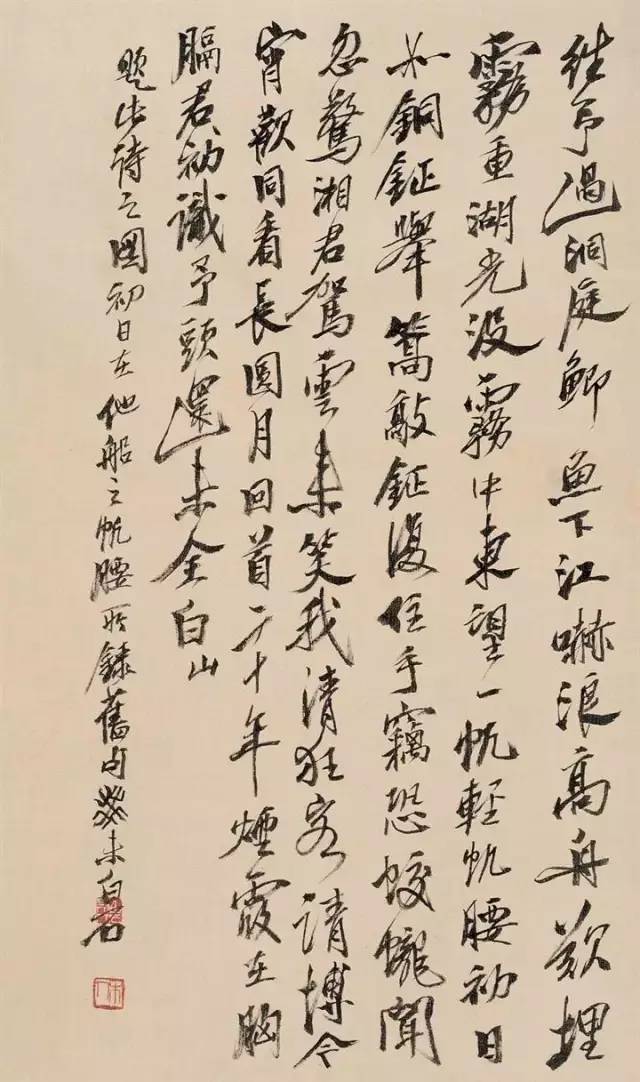 往予過洞庭鯽魚下江嚇浪高舟欲埋
霧重湖光没霧中東望一帆輕帆腰初日
如銅鉦舉篙敲鉦復住手竊恐蛟龍聞
忽驚湘君駕雲來笑我清狂客請博今
宵歡同看長圓月回首二十年煙霞在胸
膈君初識予頭還未全白山
題此詩之圖初日在他船之帆腰錄舊句癸未白石